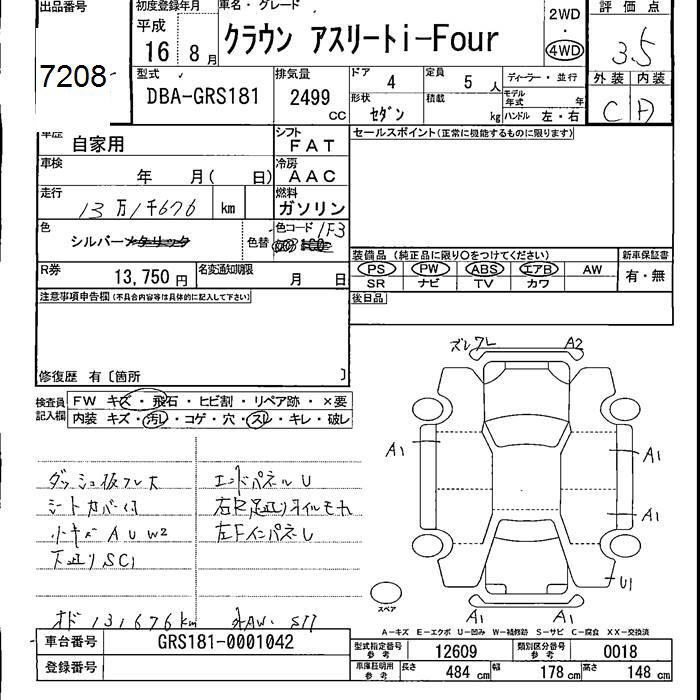 出品番号 初度登録年月 車名・グレード 評価点
平成 16 8月 クラウン アスリートi-Four 2WD 4WD 3.5
7208 型式 排気量 ドア 4 定員 5人 ディーラー・並行 外装 内装
DBA-GRS181 2499 cc 形状 セダン 積載 kg モデル年式 年 ハンドル 左・右 C A
車歴 自家用 シフト FAT セールスポイント(正常に機能するものに限ります)
車検 年 月( 日) 冷房 AAC
走行 13万1千676 km 燃料 ガソリン
色 シルバーメタリック 色替 色コード 1F3
装備品 (純正品に限り○をつけてください) 新車保証書
R券 13,750円 名変通知期限 月 日 PS PW ABS エアB AW 有・無
SR ナビ TV カワ
注意事項申告欄(不具合内容等は具体的に記入して下さい) 後日品
修復歴 有〔箇所 〕
ズレ A2
検査員記入欄 FW キズ・飛石・ヒビ割・リペア跡・×要
内装 キズ・汚レ・コゲ・穴・スレ・キレ・破レ
A1 A1
ダッシュ板フレ大 エンドパネルU
シートカバー付 オイルモれ
小キズAUW2 左FインパネU
下廻りSC1
A1
U1
スペア
A1 A1
オド 131676km
A-キズ E-エクボ U-凹み W-補修跡 S-サビ C-腐食 XX-交換済
車台番号 GRS181-0001042 型式指定番号 参考 12609 類別区分番号 参考 0018
登録番号 車庫証明用 参考 長さ 484cm 幅 178cm 高さ 148cm